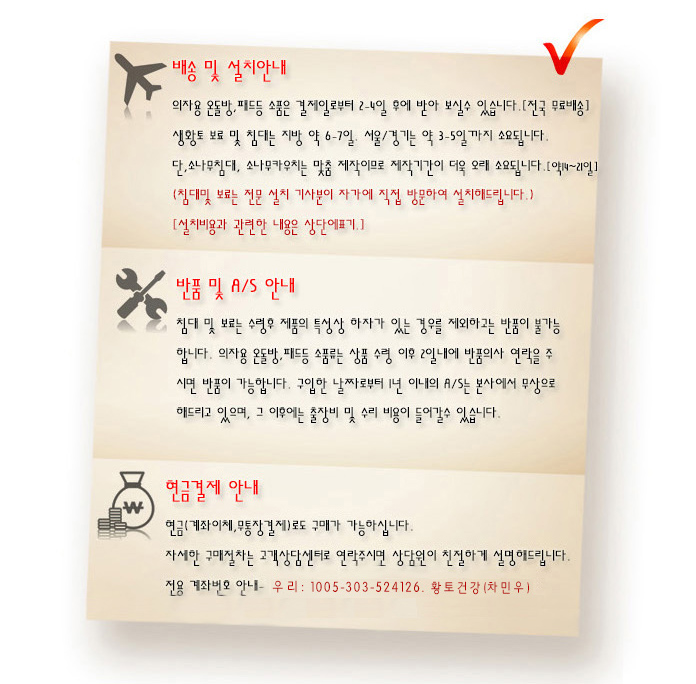 배송 및 설치안내
의자용 온돌방,패드등 소품은 결제일로부터 2-4일 후에 받아 보실수 있습니다.[전국 무료배송]
생황토 보료 및 침대는 지방 약 6-7일. 서울/경기는 약 3-5일까지 소요됩니다.
단,소나무침대, 소나무카우치는 맞춤 제작이므로 제작기간이 더욱 오래 소요됩니다.[약14~21일]
(침대및 보료는 전문 설치 기사분이 자가에 직접 방문하여 설치해드립니다.)
[설치비용과 관련한 내용은 상단에표기.]
반품 및 A/S 안내
침대 및 보료는 수령후 제품의 특성상 하자가 있는 경우를 제외하고는 반품이 불가능
합니다. 의자용 온돌방,패드등 소품류는 상품 수령 이후 2일내에 반품의사 연락을 주
시면 반품이 가능합니다. 구입한 날짜로부터 1년 이내의 A/S는 본사에서 무상으로
해드리고 있으며, 그 이후에는 출장비 및 수리 비용이 들어갈수 있습니다.
현금결제 안내
₩
현금(계좌이체,무통장결제)로도 구매가 가능하십니다.
자세한 구매절차는 고객상담센터로 연락주시면 상담원이 친절하게 설명해드립니다.
전용 계좌번호 안내- 우리: 1005-303-524126. 황토건강(차민우)